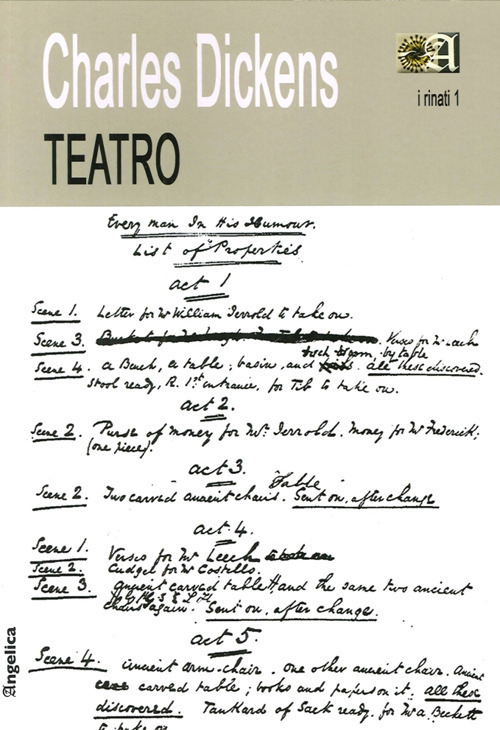 Charles Dickens
A
i rinati 1
TEATRO
Every man In His Humour.
List of Properties
act 1
Scene 1. Letter for Mr William Jerrold to take on.
Scene 3. Verses for Mr Leech
by table
Scene 4. a Bench, a table; basin, and all these discovered.
Stool ready, R. 1st entrance, for Tib to take on.
act 2.
Scene 2. Purse of money for Mr. Jerrold. Money for Mr Frederick;
(one piece).
act 3.
Table
Scene 2. Two carved ancient chairs. Sent on, after change
act 4.
Scene 1. Verses for Mr Leech
Scene 2. Cudgel for Mr Costello.
Scene 3. ancient carved table and the same two ancient
chairs again. Sent on, after change.
act 5.
Scene 4. ancient arm-chair. One other ancient chair. Ancient
carved table; books and papers on it; all these
discovered. Tankard of Sack ready, for Mr a. Beckett
to take on
Angelica